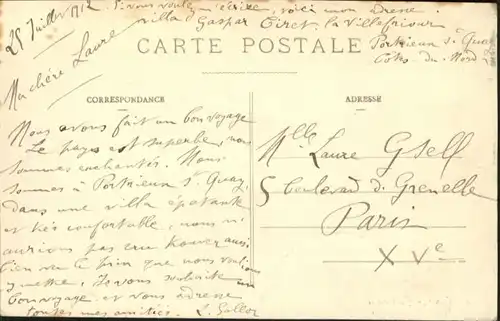 25 Juillet 1912
Si vous voulez m'écrire, voici mon adresse
villa Gaspar Circt, la Villefriour
CARTE POSTALE
Portrieux St Quay
Côtes du Nord
Ma chère Laure
CORRESPONDANCE
ADRESSE
Nous avons fait un bon voyage
Le pays est superbe, nous
sommes enchantés. Nous
sommes à Portrieux St Quay,
dans une villa épatante
et très confortable, nous n'
aurions pas cru trouver aussi
bien vu le prix que nous voulions
y mettre. Je vous souhaite un
bon voyage et vous adresse
toutes mes amitiés.
Mlle Laure Gsell
5 boulevard de Grenelle
Paris
XVe